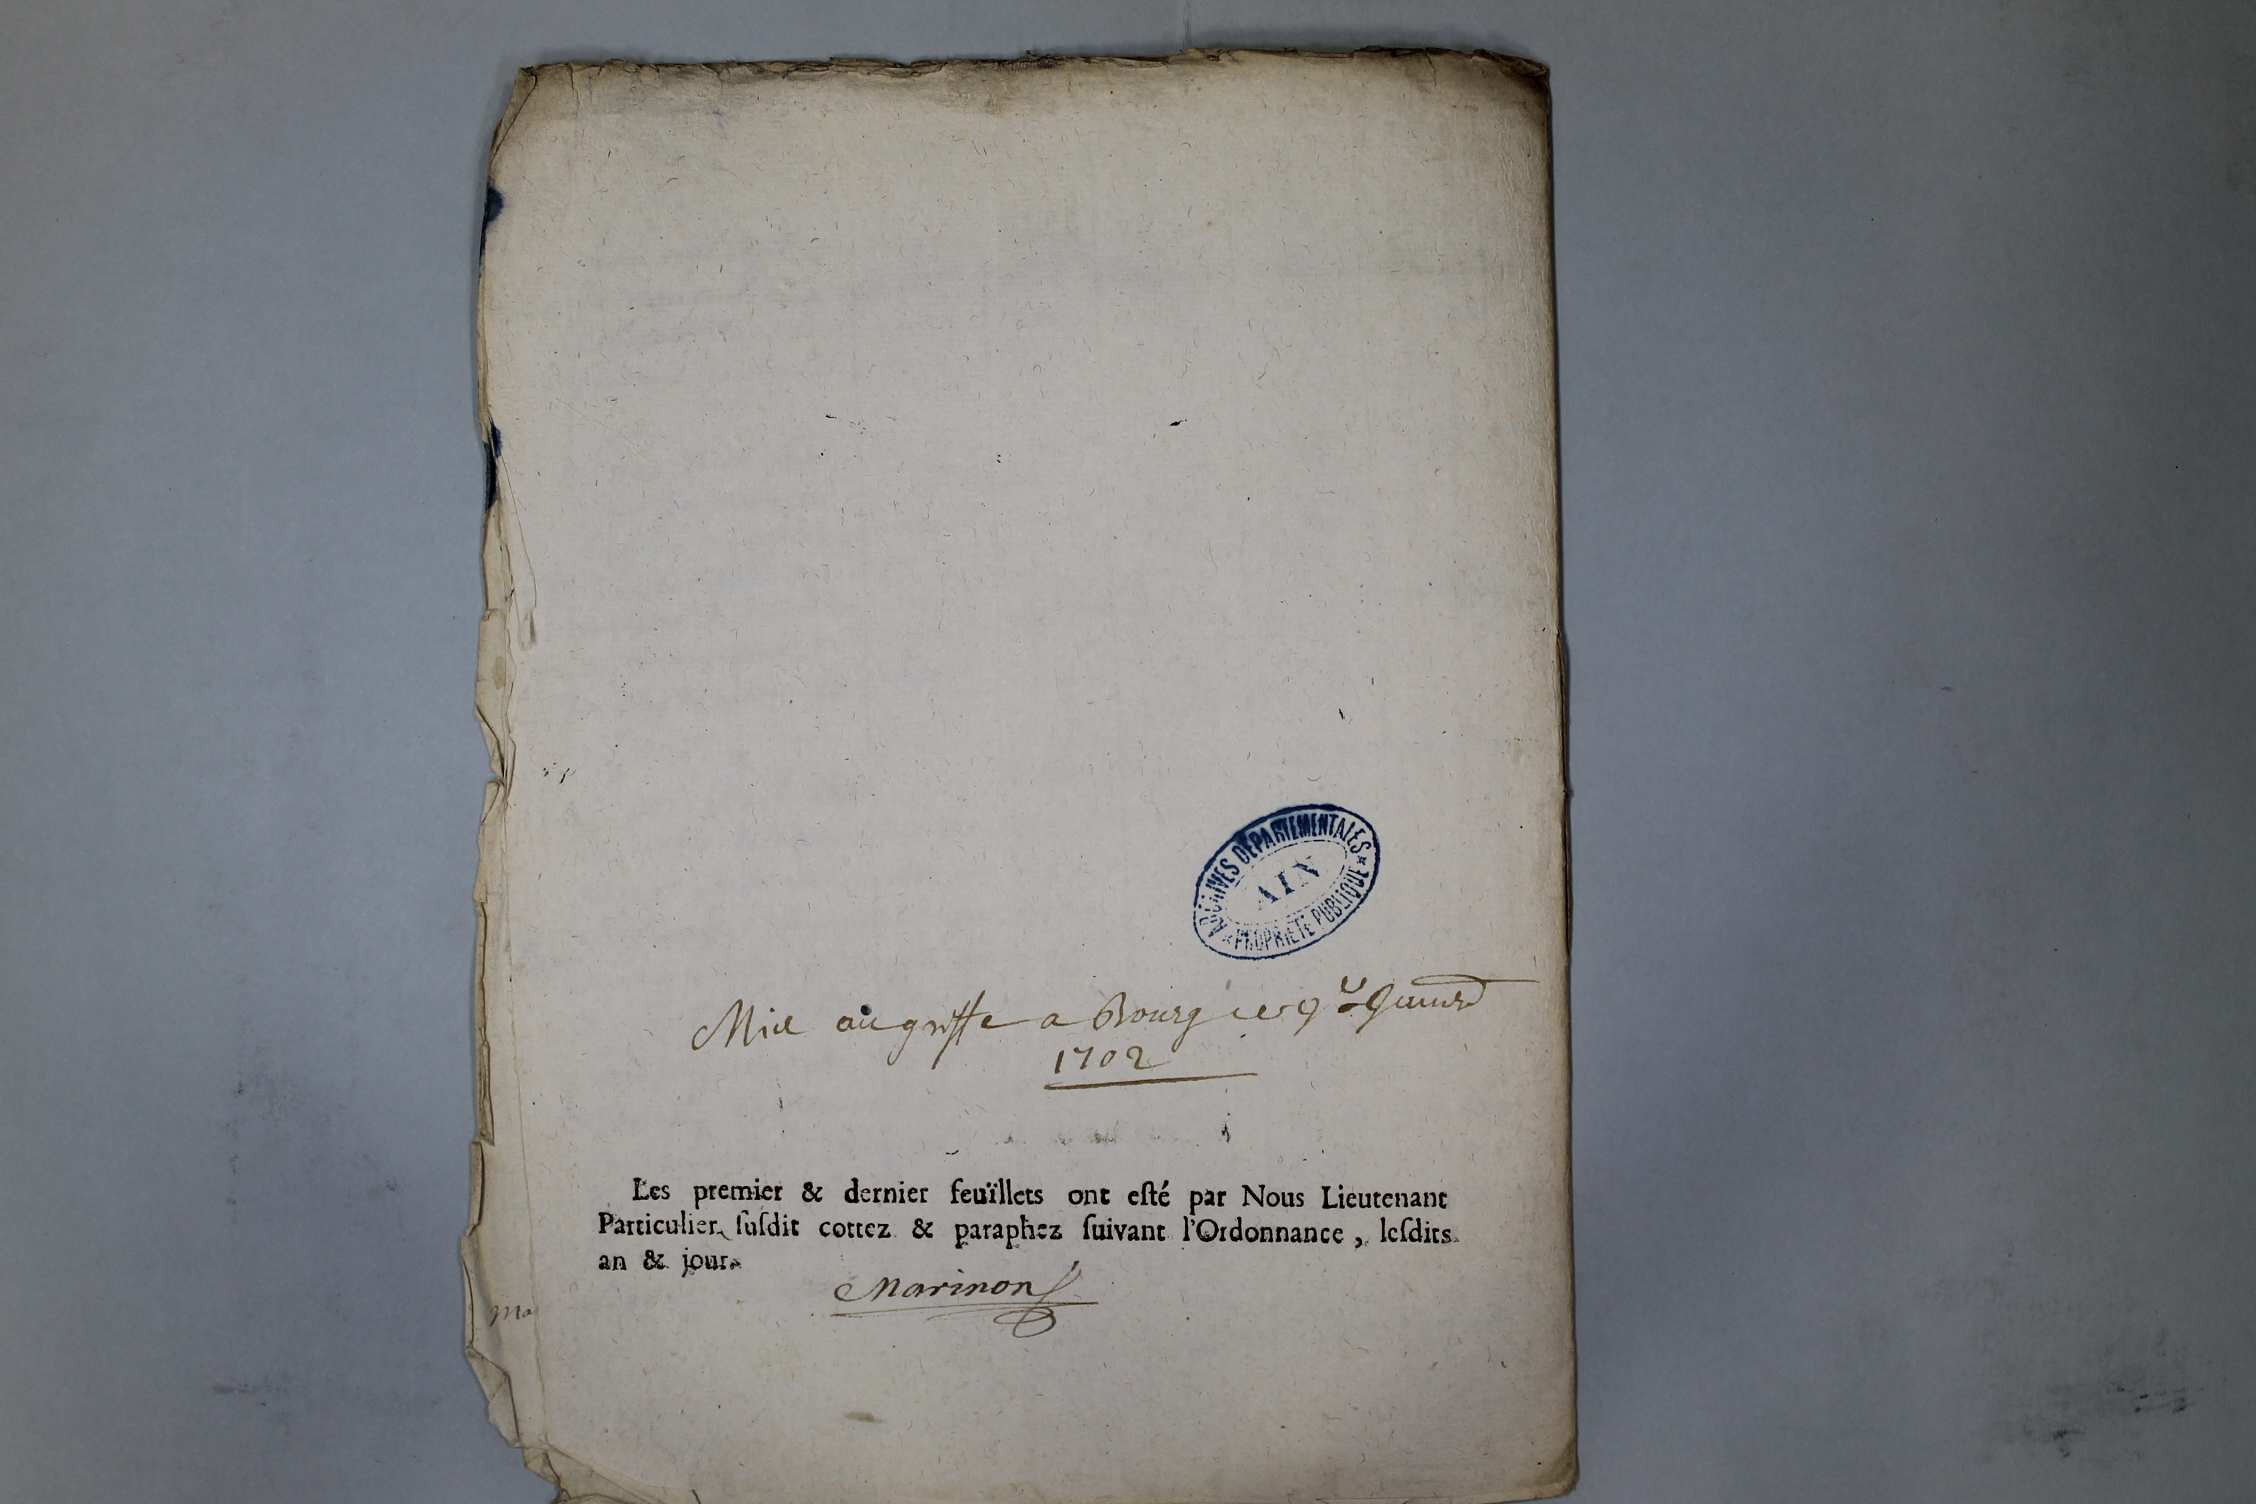 ARCHIVES DÉPARTEMENTALES
AIN
* PROPRIÉTÉ PUBLIQUE *
Mis au greffe a Bourg le
1702
Les premier & dernier feuïllets ont eſté par Nous Lieutenant
Particulier ſuſdit cottez & paraphez ſuivant l'Ordonnance, leſdits
an & jour.
Marinon
Ma